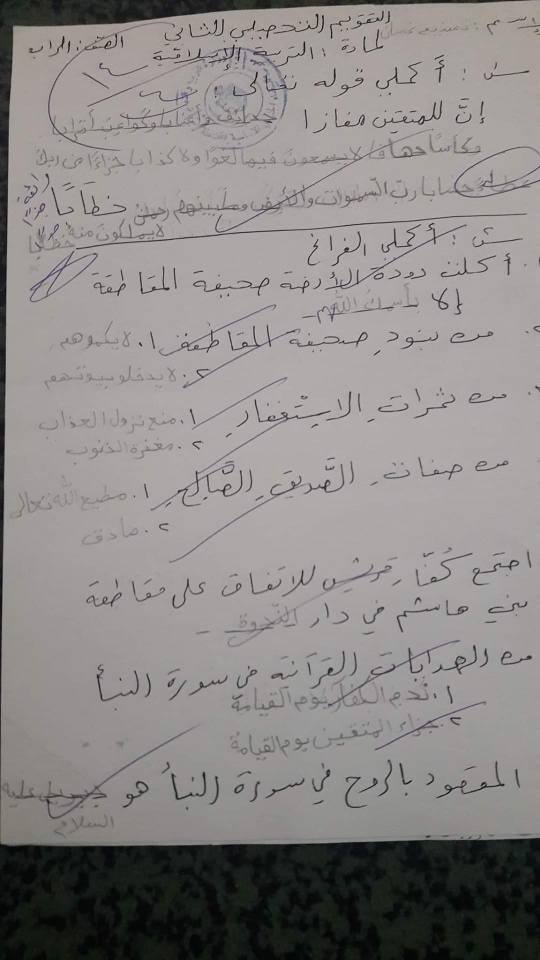 التقويم التحصيلي الثاني
الاسم : الصف: الرابع
لمادة : التربية الإسلامية
س١ : أكملي قوله تعالى :
إنَّ للمتقين مفازا حدائق وأعنابا وكواعب أترابا
وكأسا دهاقا لا يسمعون فيها لغوا ولا كذابا جزاءا من ربك
عطاء حسابا رب السموات والأرض وما بينهم رحمن خطابا
لا يملكون منه خطابا
س٢ : أكملي الفراغ
١. أكلت دودة الأرضة صحيفة المقاطعة
إلا باسمك اللهم
٢. من بنود صحيفة المقاطعة ١. لا يكلموهم
٢. لا يدخلو بيوتهم
من ثمرات الاستغفار ١. منع نزول العذاب
٢. مغفرة الذنوب
من صفات الصَّديق الصَّالح ١. مطيع الله تعالى
٢. صادق
اجتمع كُفّار قريش للاتفاق على مقاطعة
بني هاشم في دار الندوة
من الهدايات القرآنية في سورة النبأ
١. ندم الكفار يوم القيامة
٢. جزاء المتقين يوم القيامة
المقصود بالروح في سورة النبأ هو جبريل عليه
السلام